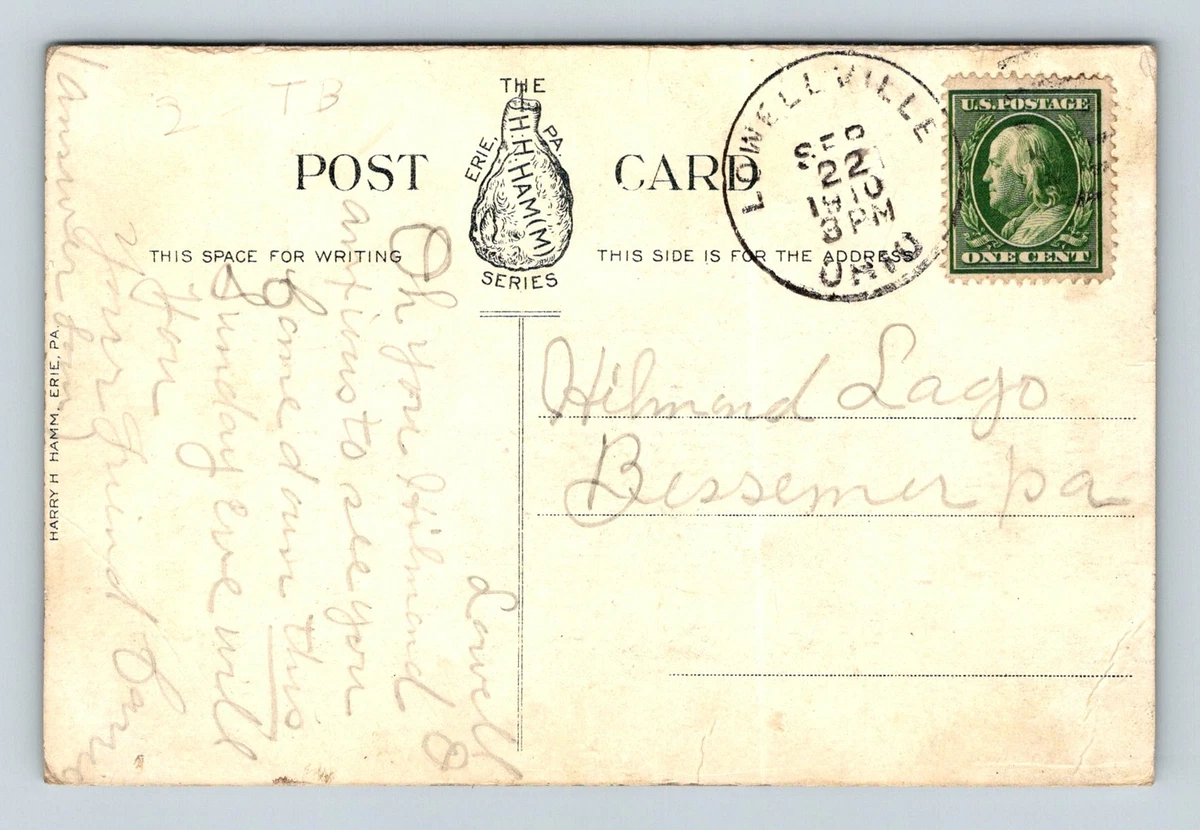 THE
H.H.HAM(M)
ERIE PA.
SERIES
POST CARD
THIS SPACE FOR WRITING
THIS SIDE IS FOR THE ADDRESS
LOWELLVILLE
SEP
22
1910
3 PM
OHIO
U.S. POSTAGE
ONE CENT
TB
2
Hilmend Lago
Bessemer pa
Lowell O
Oh you Hilmend
anxious to see you
Come down this
Sunday eve will
you
Your friend
answer
HARRY H HAMM, ERIE, PA.